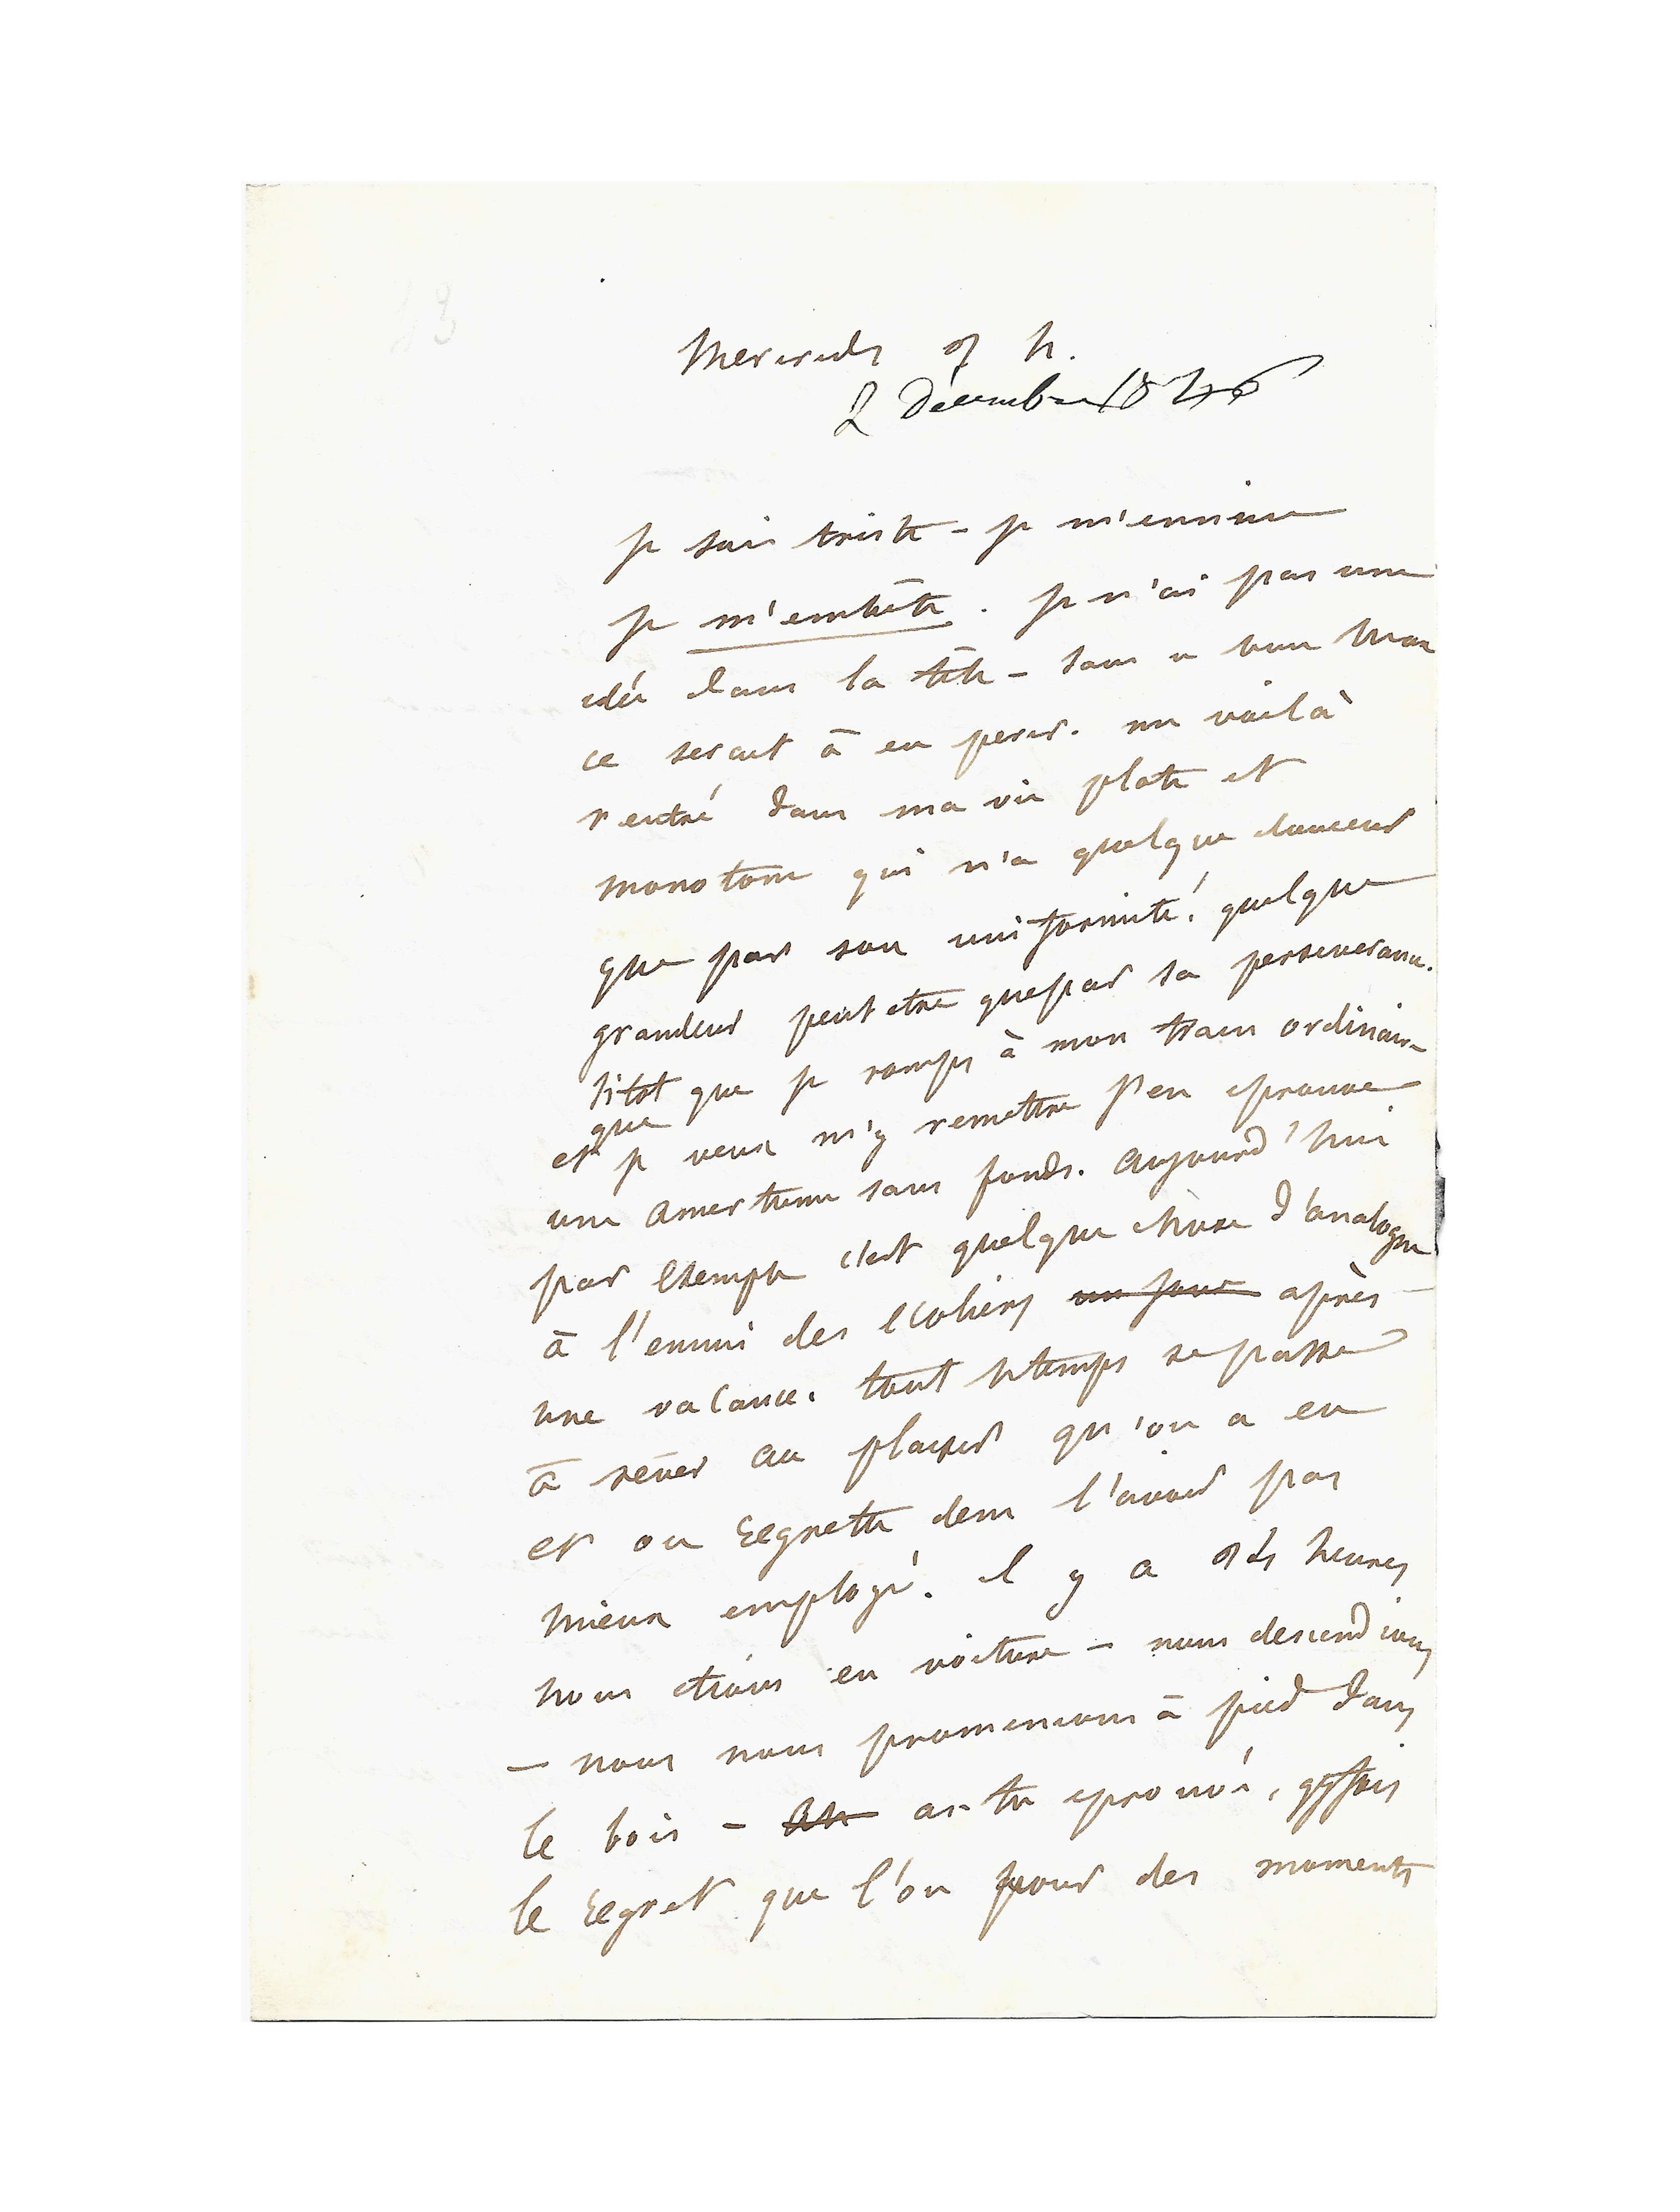 Mercredi 9 h.
2 Décembre 1846
je suis triste – je m'ennuie
je m'embête. je n'ai pas une
idée dans la tête – sans
ce serait à en perir. me voilà
rentré dans ma vie plate et
monotone qui n'a quelque douceur
que par son uniformité, quelque
grandeur peut etre que par sa perseverance.
sitot que je romps à mon train ordinaire
et que je veux m'y remettre j'en eprouve
une amertume sans fonds. aujourd'hui
par exemple c'est quelque chose d'analogue
à l'ennui des ecoliers un jour après
une vacance. tout le temps se passe
à rêver au plaisir qu'on a eu
et on regrette de ne l'avoir pas
mieux employé. il y a heures
nous etions en voiture – nous descendions
– nous nous promenions à pied dans
le bois – as-tu eprouvé, qqfois
le regret que l'on pour des moments